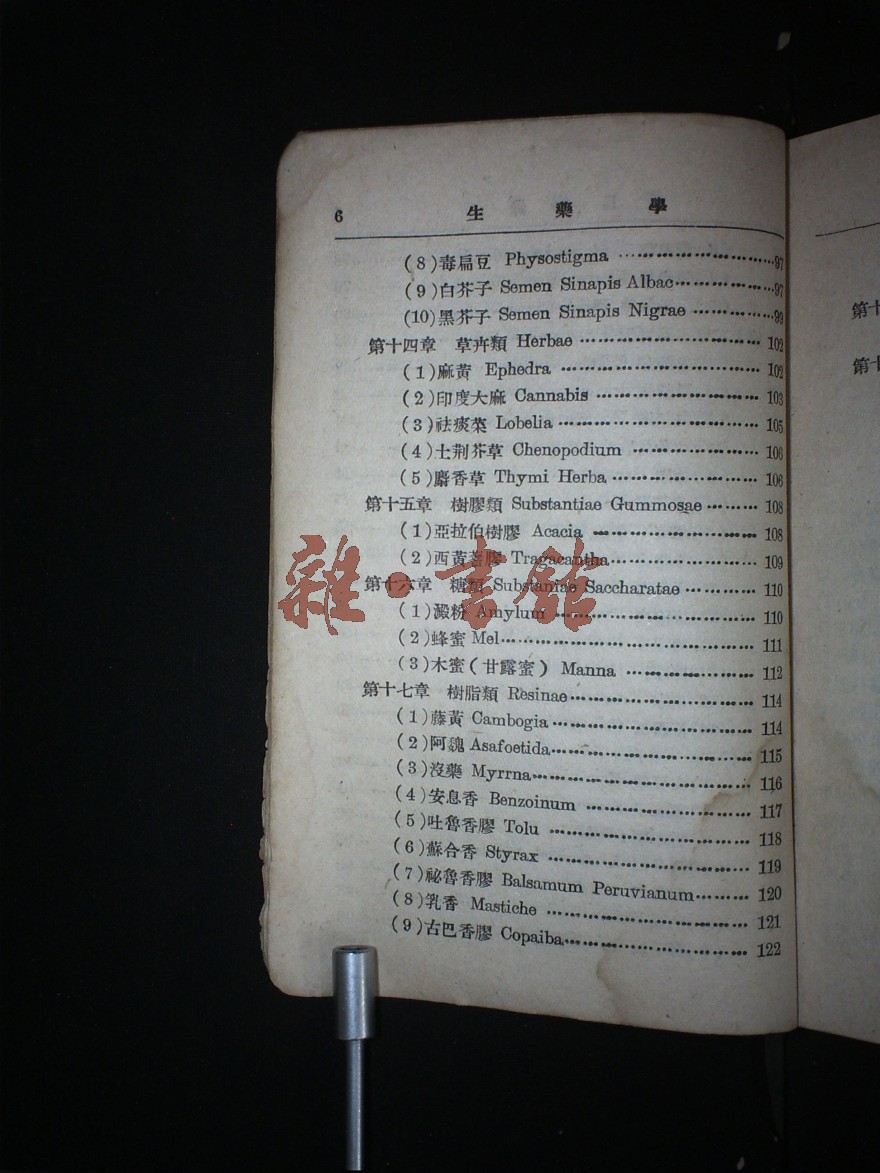 6 生藥學
(8)毒扁豆 Physostigma ……………………97
(9)白芥子 Semen Sinapis Albac……………97
(10)黑芥子 Semen Sinapis Nigrae …………99
第十四章 草卉類 Herbae ……………………… 102
(1)麻黃 Ephedra ……………………………… 102
(2)印度大麻 Cannabis ……………………… 103
(3)祛痰菜 Lobelia …………………………… 105
(4)土荆芥草 Chenopodium ………………… 106
(5)麝香草 Thymi Herba …………………… 106
第十五章 樹膠類 Substantiae Gummosae ……… 108
(1)亞拉伯樹膠 Acacia ……………………… 108
(2)西黃蓍膠 Tragacantha…………………… 109
第十六章 糖類 Substaniae Saccharatae ……… 110
(1)澱粉 Amylum ……………………………… 110
(2)蜂蜜 Mel…………………………………… 111
(3)木蜜(甘露蜜) Manna …………………… 112
第十七章 樹脂類 Resinae……………………… 114
(1)藤黃 Cambogia …………………………… 114
(2)阿魏 Asafoetida…………………………… 115
(3)沒藥 Myrrna……………………………… 116
(4)安息香 Benzoinum ……………………… 117
(5)吐魯香膠 Tolu …………………………… 118
(6)蘇合香 Styrax …………………………… 119
(7)祕魯香膠 Balsamum Peruvianum……… 120
(8)乳香 Mastiche …………………………… 121
(9)古巴香膠 Copaiba………………………… 122
雜·書館
第十
第十